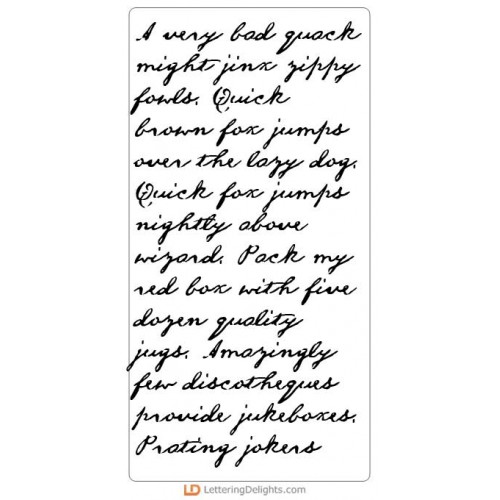 A very bad quack
might jinx zippy
fowls. Quick
brown fox jumps
over the lazy dog.
Quick fox jumps
nightly above
wizard. Pack my
red box with five
dozen quality
jugs. Amazingly
few discotheques
provide jukeboxes.
Prating jokers
LD LetteringDelights.com